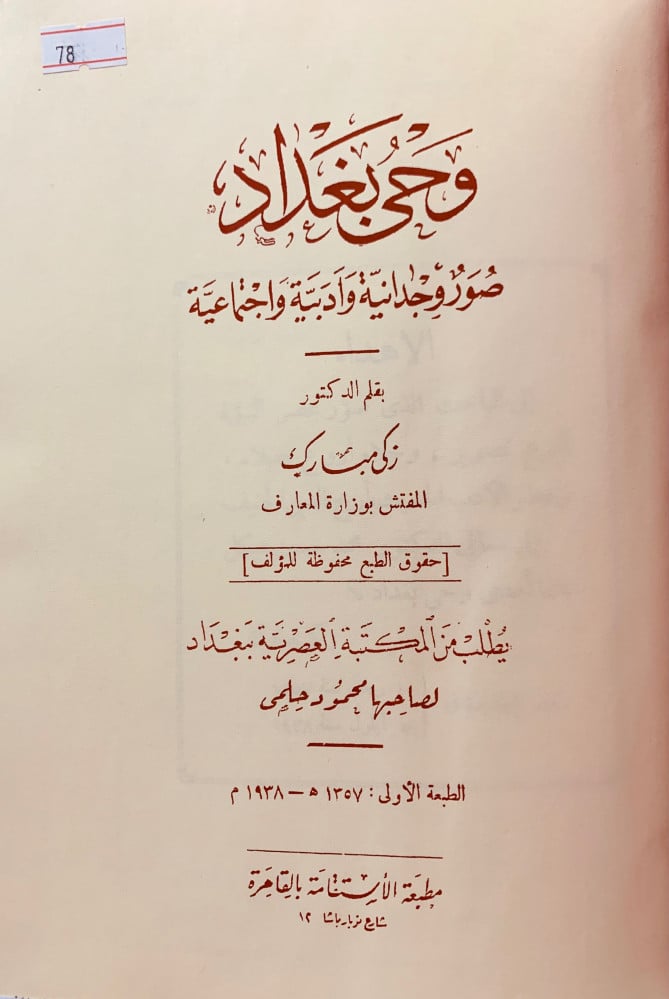 78
وَحْيُ بَغْدَاد
صُوَرٌ وِجْدَانِيَّة وَأَدَبِيَّة وَاجْتِمَاعِيَّة
بقلم الدكتور
زكى مبارك
المفتش بوزارة المعارف
[حقوق الطبع محفوظة للمؤلف]
يُطْلَبُ مِنَ الْمَكتَبَةِ الْعَصْرِيَّةِ بِبَغْدَاد
لصاحبها محمود حلمى
الطبعة الأولى: ١٣٥٧ هـ — ١٩٣٨ م
مطبعَة الأستقامَة بالقاهِرَة
شارع نوبار باشا ١٢